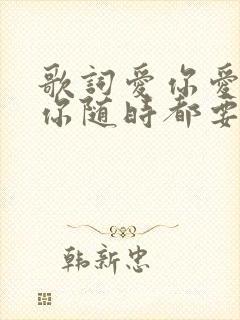 歌詞愛你愛
你随時都要
韩新忠